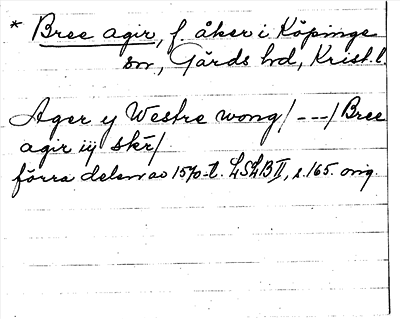 * Bree agir, f. åker i Köpinge
sn, Gärds hd, Krist. l.
Ager y Westre wong /---/ Bree
agir iij skr/
förra delen av 1570-t. LSLB II, s. 165. orig.